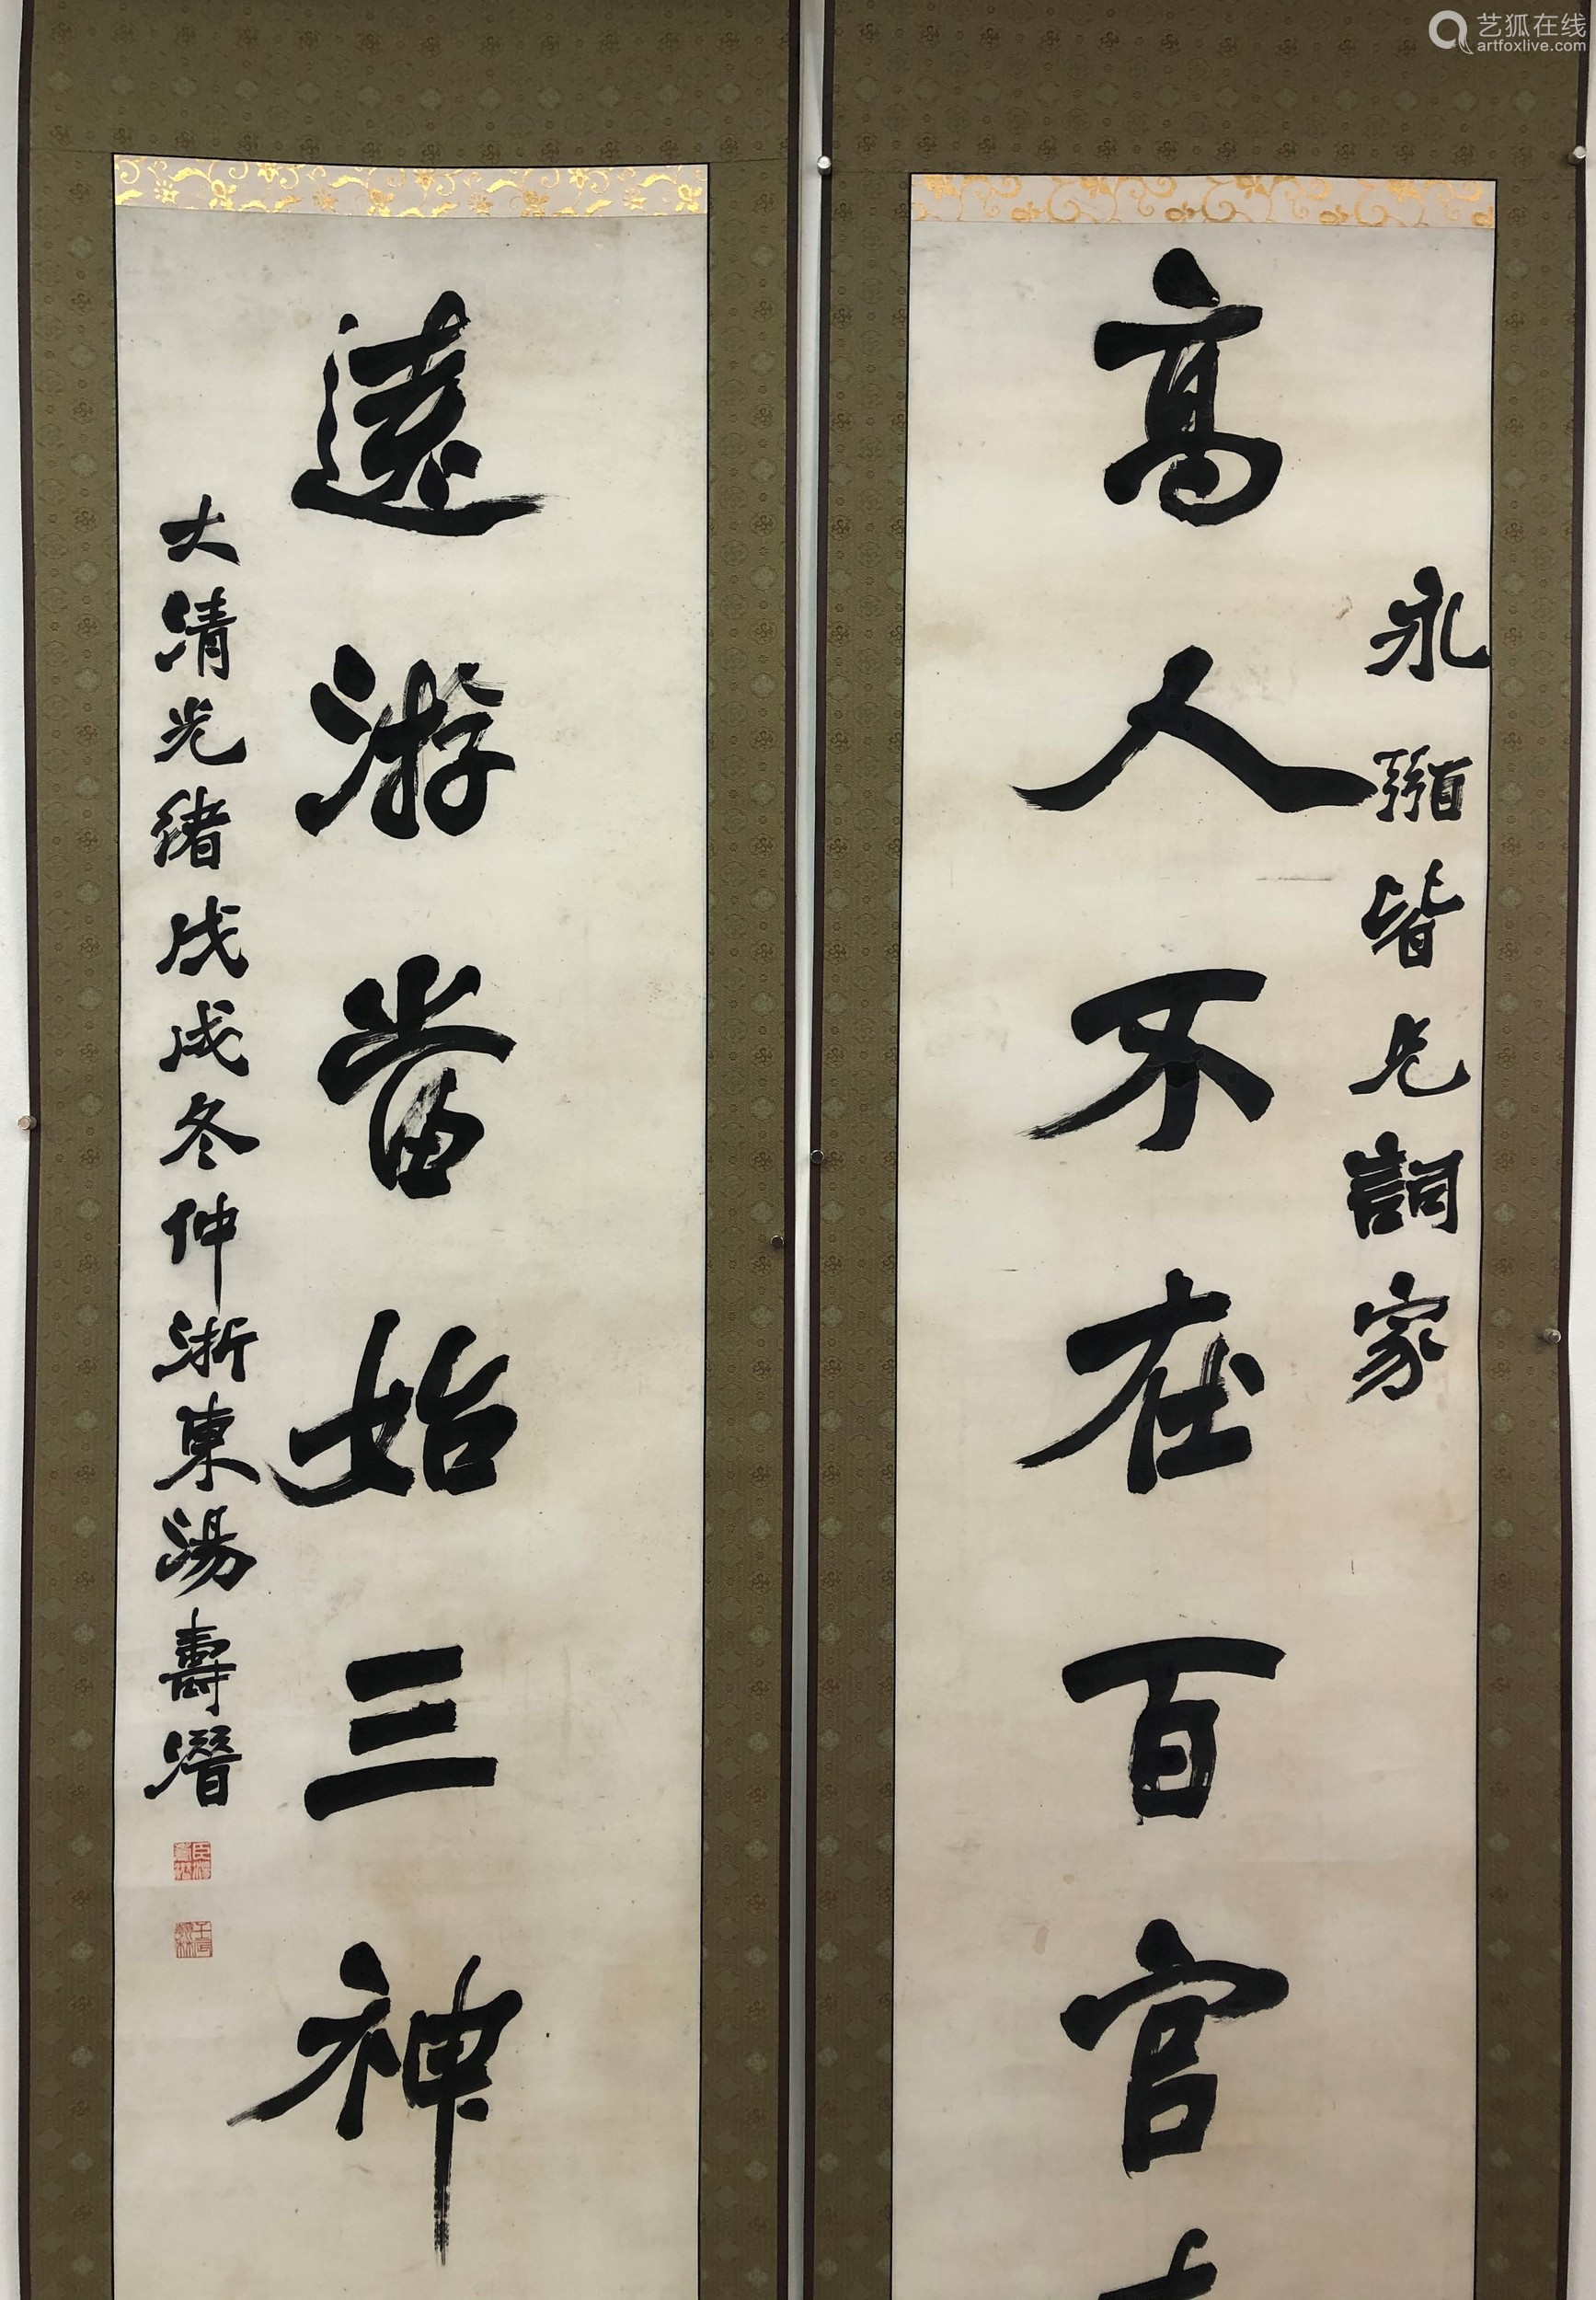 艺狐在线
artfoxlive.com
高人不在百官
永 皆兄詞家
遠游當始三神
大清光緒戊戌冬仲浙東湯壽潛